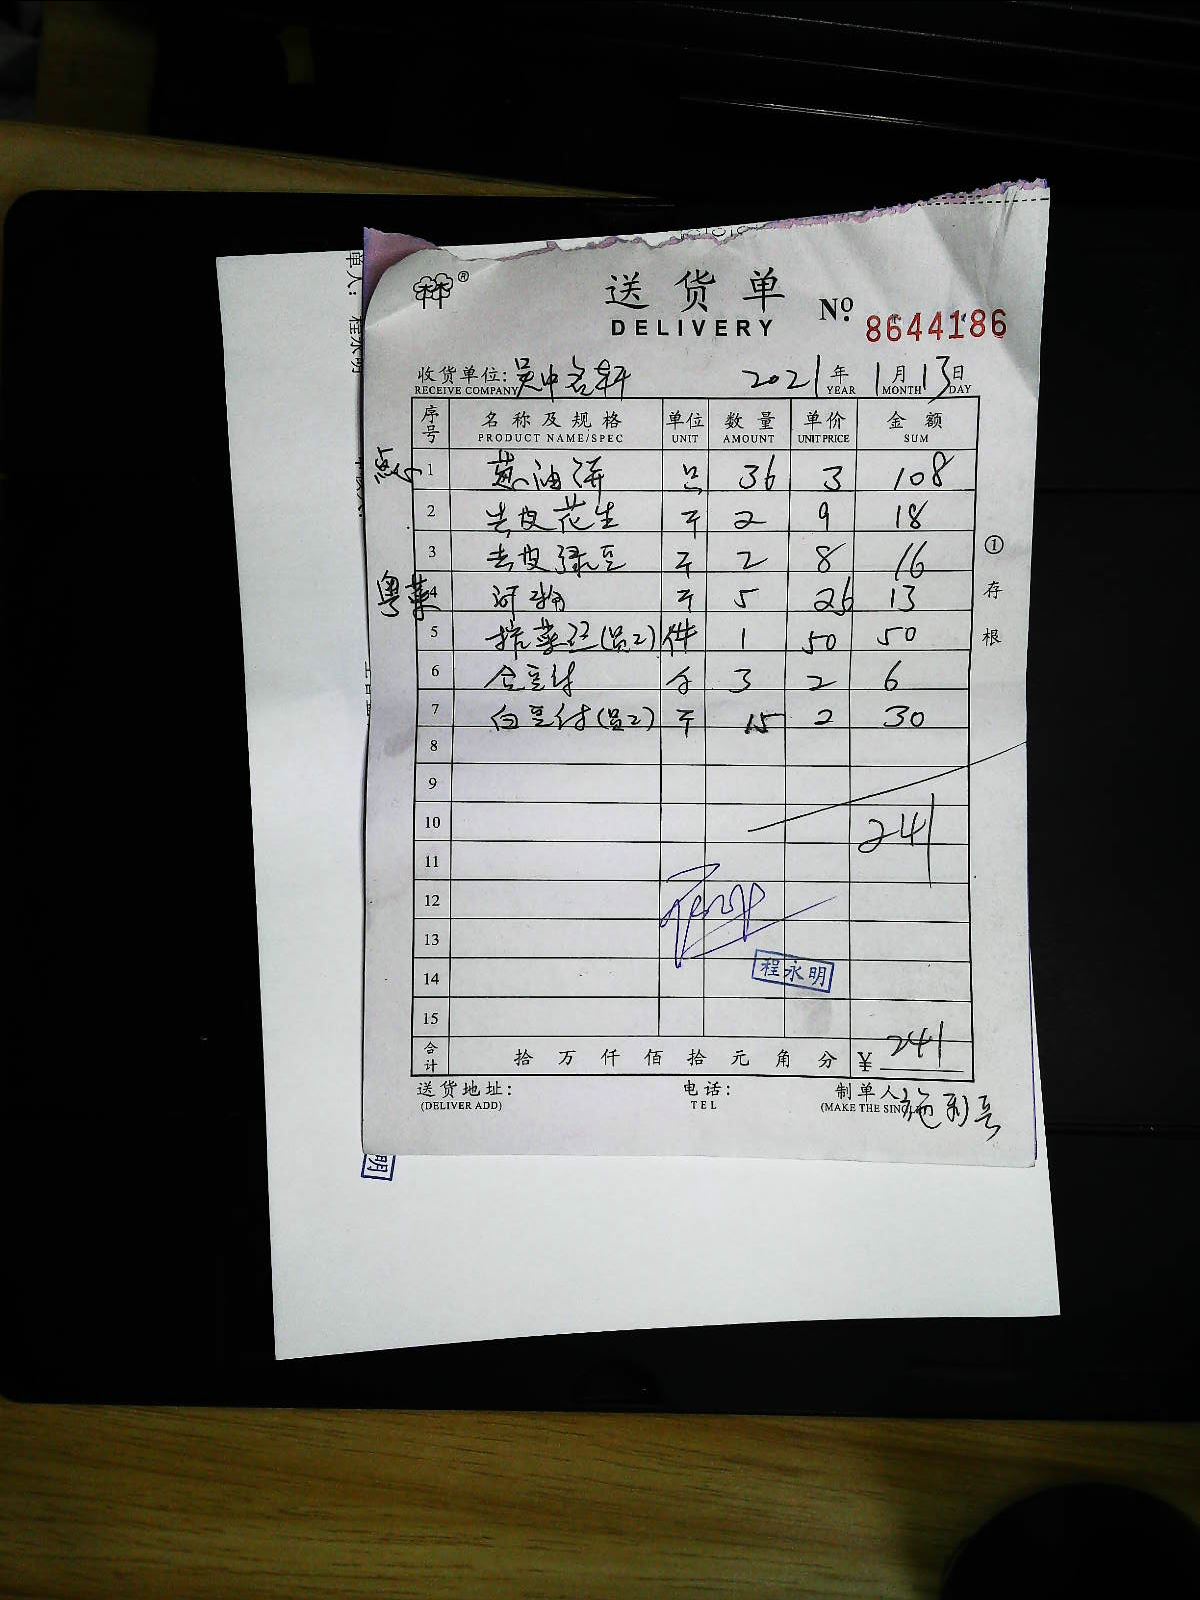 送货单
DELIVERY
No. 8644186
收货单位: 吴中名轩 2021年 1月 13日
RECEIVE COMPANY YEAR MONTH DAY
序号 名称及规格 单位 数量 单价 金额
PRODUCT NAME/SPEC UNIT AMOUNT UNIT PRICE SUM
点心 1 葱油饼 只 36 3 108
2 去皮花生 斤 2 9 18
3 去皮绿豆 斤 2 8 16
粤菜 4 河粉 斤 5 26 13
5 榨菜丝(员工) 件 1 50 50
6 3 2 6
7 白豆付(员工) 斤 15 2 30
8
9
10 241
11
12
13
程永明
14
15
合计 拾 万 仟 佰 拾 元 角 分 ¥ 241
送货地址: 电话: 制单人
(DELIVER ADD) TEL (MAKE THE SING
① 存根
单人: 程永明
明